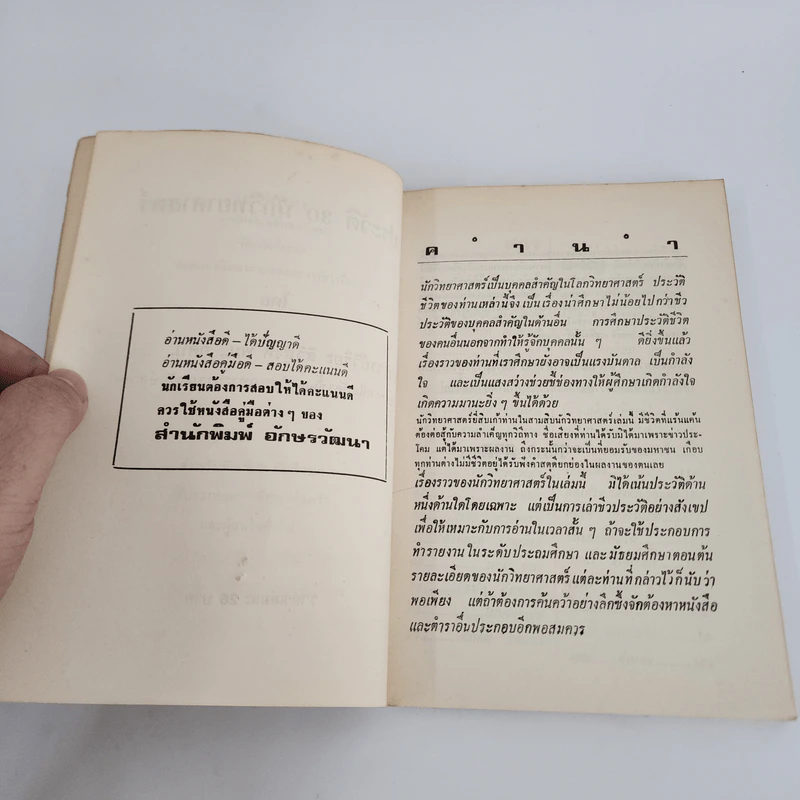 อ่านหนังสือดี – ได้ปัญญาดี
อ่านหนังสือคู่มือดี – สอบได้คะแนนดี
นักเรียนต้องการสอบให้ได้คะแนนดี
ควรใช้หนังสือคู่มือต่าง ๆ ของ
สำนักพิมพ์ อักษรวัฒนา
คำนำ
นักวิทยาศาสตร์เป็นบุคคลสำคัญในโลกวิทยาศาสตร์ ประวัติ
ชีวิตของท่านเหล่านี้จึงเป็นเรื่องน่าศึกษาไม่น้อยไปกว่าชีว
ประวัติของบุคคลสำคัญในด้านอื่น การศึกษาประวัติชีวิต
ของคนอื่นนอกจากทำให้รู้จักบุคคลนั้น ๆ ดียิ่งขึ้นแล้ว
เรื่องราวของท่านที่เราศึกษายังอาจเป็นแรงบันดาล เป็นกำลัง
ใจ และเป็นแสงสว่างช่วยชี้ช่องทางให้ผู้ศึกษาเกิดกำลังใจ
เกิดความมานะยิ่ง ๆ ขึ้นได้ด้วย
นักวิทยาศาสตร์ยี่สิบเก้าท่านในสามสิบนักวิทยาศาสตร์เล่มนี้ มีชีวิตที่แร้นแค้น
ต้องต่อสู้กับความลำเค็ญทุกวิถีทาง ชื่อเสียงที่ท่านได้รับมิได้มาเพราะข่าวประ-
โคม แต่ได้มาเพราะผลงาน ถึงกระนั้นกว่าจะเป็นที่ยอมรับของมหาชน เกือบ
ทุกท่านต่างไม่มีชีวิตอยู่ได้รับฟังคำสดุดียกย่องในผลงานของตนเลย
เรื่องราวของนักวิทยาศาสตร์ในเล่มนี้ มิได้เน้นประวัติด้าน
หนึ่งด้านใดโดยเฉพาะ แต่เป็นการเล่าชีวประวัติอย่างสังเขป
เพื่อให้เหมาะกับการอ่านในเวลาสั้น ๆ ถ้าจะใช้ประกอบการ
ทำรายงานในระดับประถมศึกษา และมัธยมศึกษาตอนต้น
รายละเอียดของนักวิทยาศาสตร์แต่ละท่านที่กล่าวไว้ก็นับว่า
พอเพียง แต่ถ้าต้องการค้นคว้าอย่างลึกซึ้งจักต้องหาหนังสือ
และตำราอื่นประกอบอีกพอสมควร